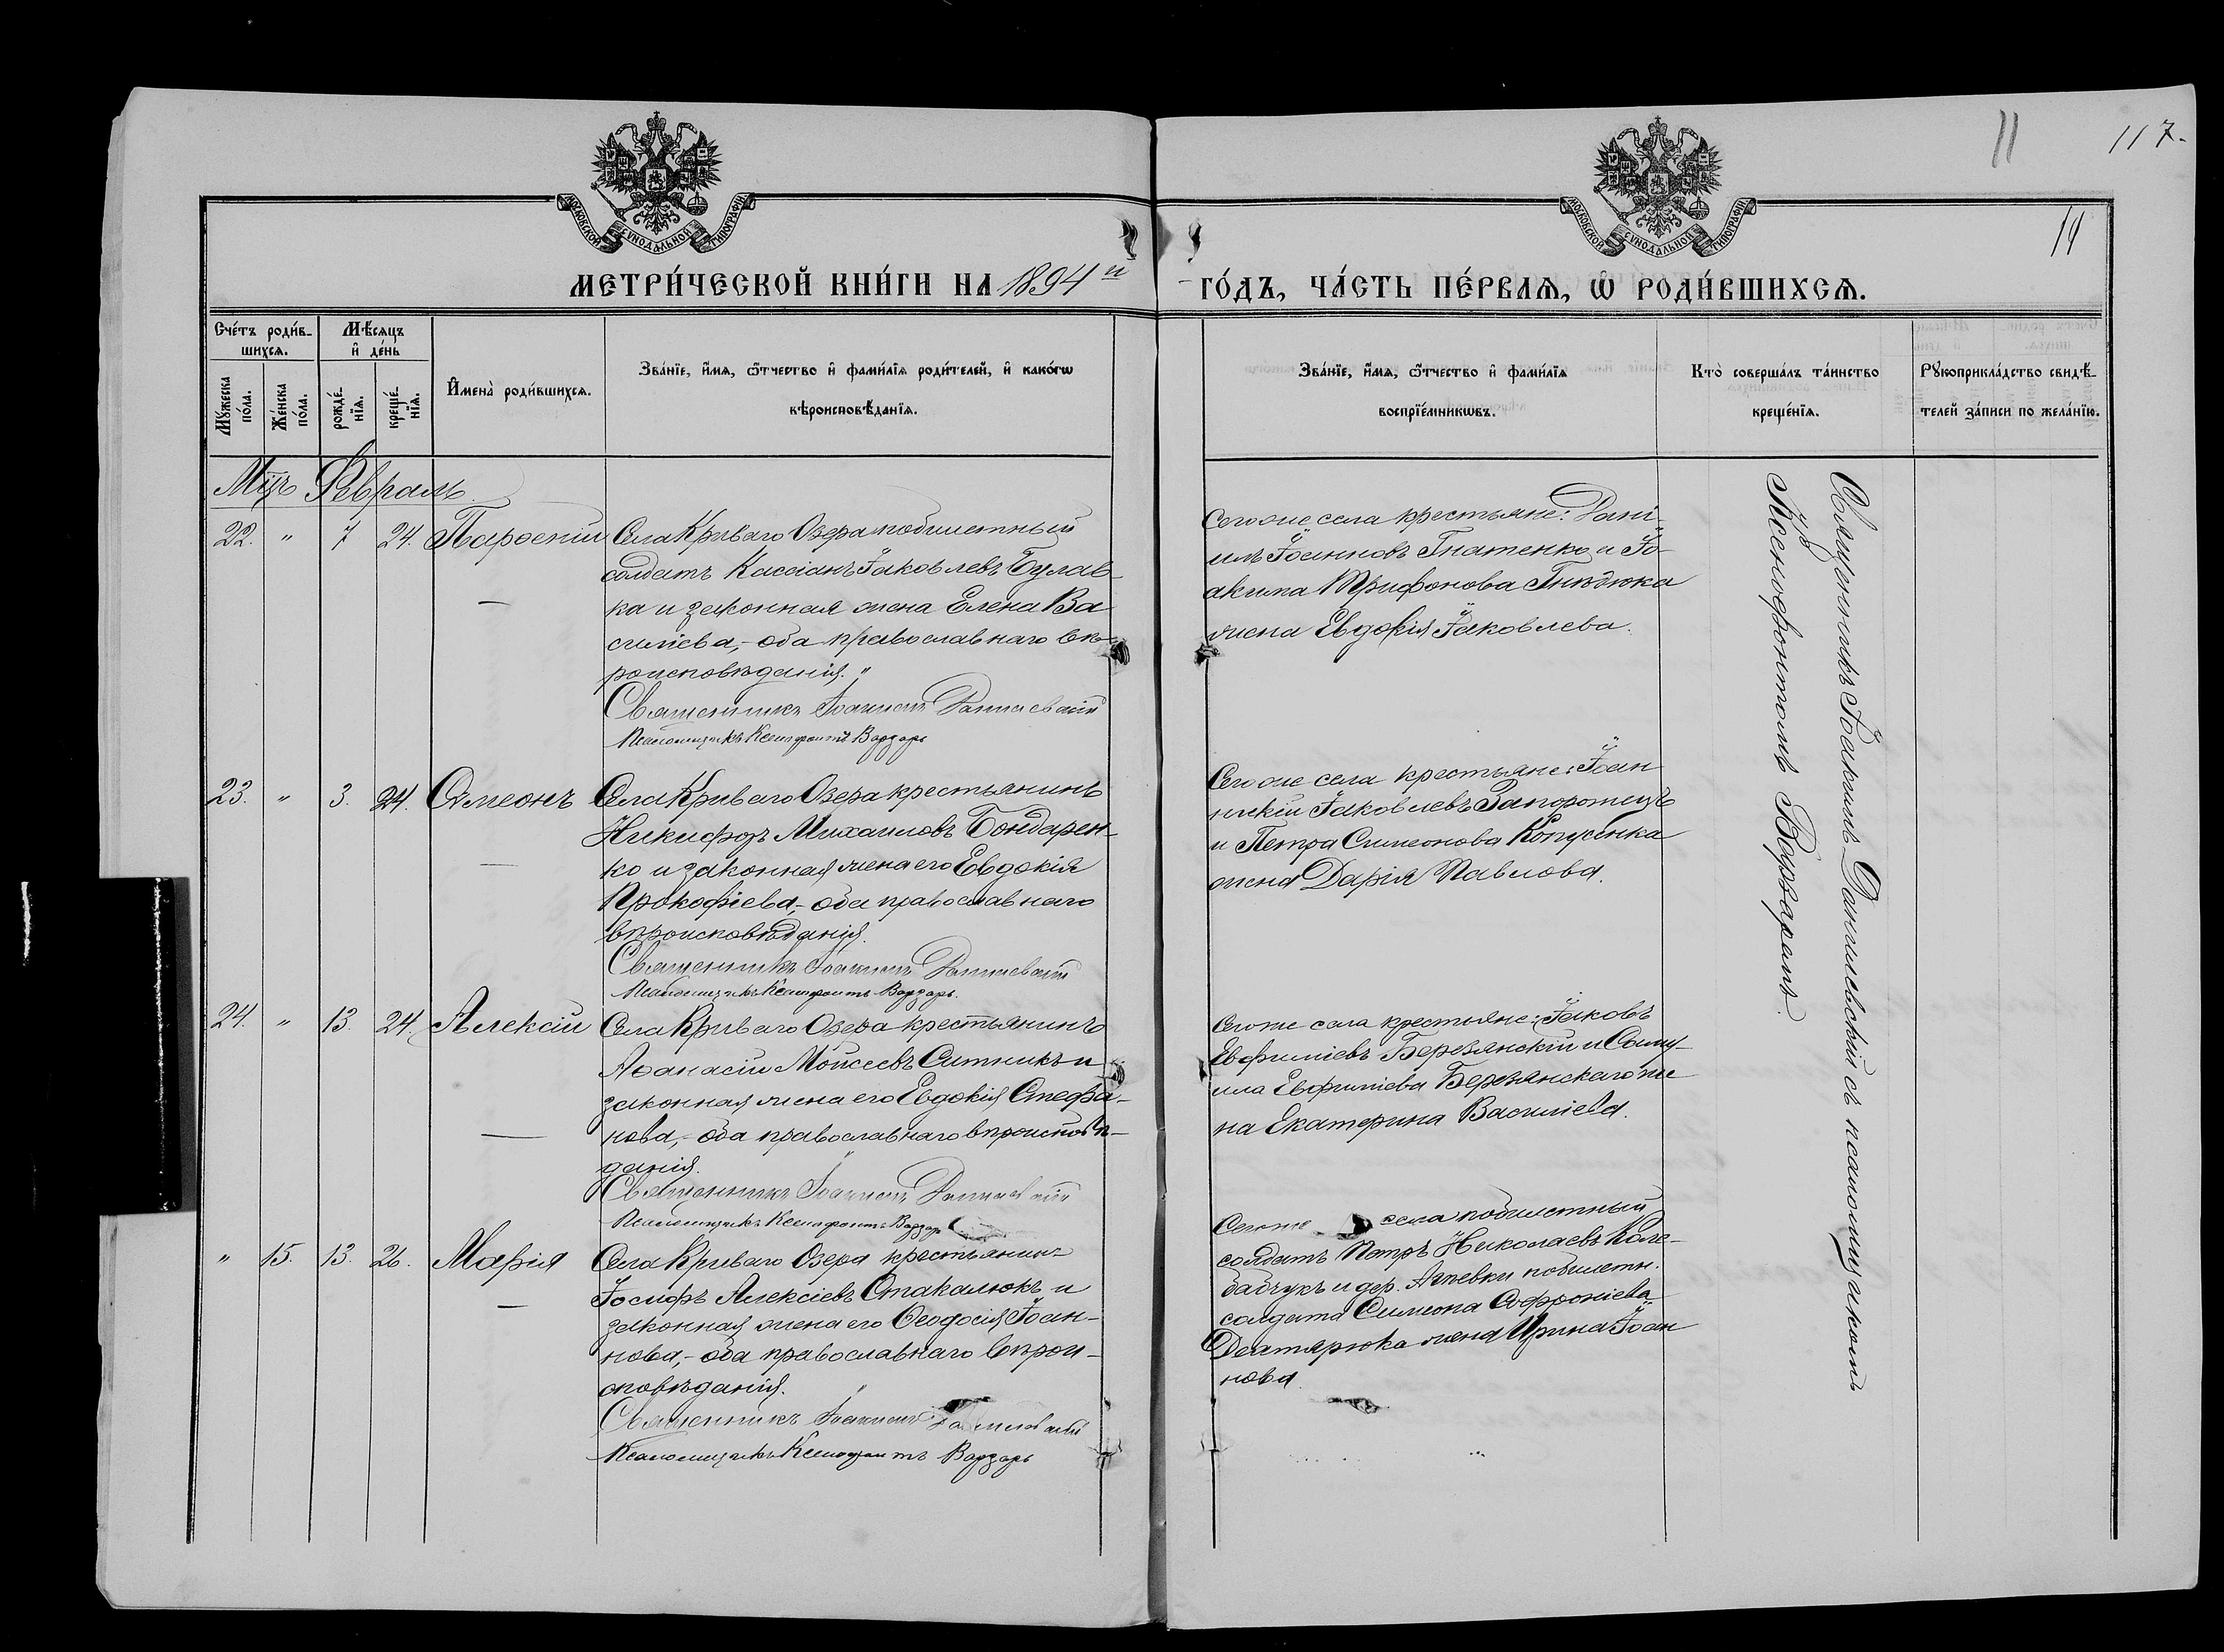 11
117.
11
МОСКОВСКОЙ СѴНОДАЛЬНОЙ ТИПОГРАФІИ
МОСКОВСКОЙ СѴНОДАЛЬНОЙ ТИПОГРАФІИ
МЕТРИ́ЧЕСКОЙ КНИ́ГИ НА 1894й
ГО́ДЪ, ЧА́СТЬ ПЕ́РВАЯ, Ѡ҆ РОДИ́ВШИХСЯ.
Сче́тъ роди́в-
шихся.
Мѣ́сяцъ
и҆ де́нь
Мꙋ́жеска
по́ла.
Же́нска
по́ла.
рожде́-
нїя.
креще́-
нїя.
И҆мена̀ роди́вшихся.
Зва́нїе, и҆́мя, ѻ҆́тчество и҆ фами́лїя роди́телей, и҆ како́гѡ
вѣроисповѣ́данїя.
Зва́нїе, и҆́мя, ѻ҆́тчество и҆ фами́лїя
воспрїе́мникѡвъ.
Кто̀ соверша́лъ та́инство
креще́нїя.
Рꙋкоприкла́дство свидѣ́-
телей за́писи по жела́нїю.
Мѣц. Февраль.
22. " 7 24. Парѳеній
Села Криваго Озера побилетный
солдатъ Кассіанъ Іаковлевъ Булав-
ка и законная жена Елена Ва
силіева,- оба православнаго вѣ-
роисповѣданія."
Священникъ Іоакимъ Данилевскій
Псаломщикъ Ксенофонтъ Варзарь
Сегоже села крестьяне: Дані-
илъ Іоанновъ Гнатенко и Іо-
акима Трифонова Гнидюка
жена Евдокія Іаковлева.
23. " 3. 24. Симеонъ
Села Криваго Озера крестьянинъ
Никифоръ Михаиловъ Бондарен-
ко и законная жена его Евдокія
Прокофіева,- оба православнаго
вѣроисповѣданія.
Священникъ Іоакимъ Данилевскій
Псаломщикъ Ксенофонтъ Варзарь.
Сегоже села крестьяне: Іоан
никій Іаковлевъ Запорожецъ
и Петра Симеонова Копусенка
жена Дарія Павлова.
24. " 13. 24. Алексій
Села Криваго Озера крестьянинъ
Аѳанасій Моисеевъ Ситникъ и
законная жена его Евдокія Стефа-
нова,- оба православнаго вѣроисповѣ-
данія.
Священникъ Іоакимъ Данилевскій
Псаломщикъ Ксенофонтъ Варзарь
Сегоже села крестьяне: Іаковъ
Евфиміевъ Березянскій и Саму-
ила Евфиміева Березянскаго же
на Екатерина Василіева.
" 15. 13. 26. Марія
Села Криваго Озера крестьянинъ
Іосифъ Алексіевъ Стакалюкъ и
законная жена его Ѳеодосія Іоан-
нова,- оба православнаго вѣрои-
сповѣданія.
Священникъ Іоакимъ Данилевскій
Псаломщикъ Ксенофонтъ Варзарь
Сегоже села побилетный
солдатъ Петръ Николаевъ Коле-
бабчукъ и дер. побилетн.
солдата Симеона Софроніева
Дегтярюка жена Ирина Іоан
нова.
Священникъ Іоакимъ Данилевскій съ псаломщикомъ
Ксенофонтомъ Варзарем.